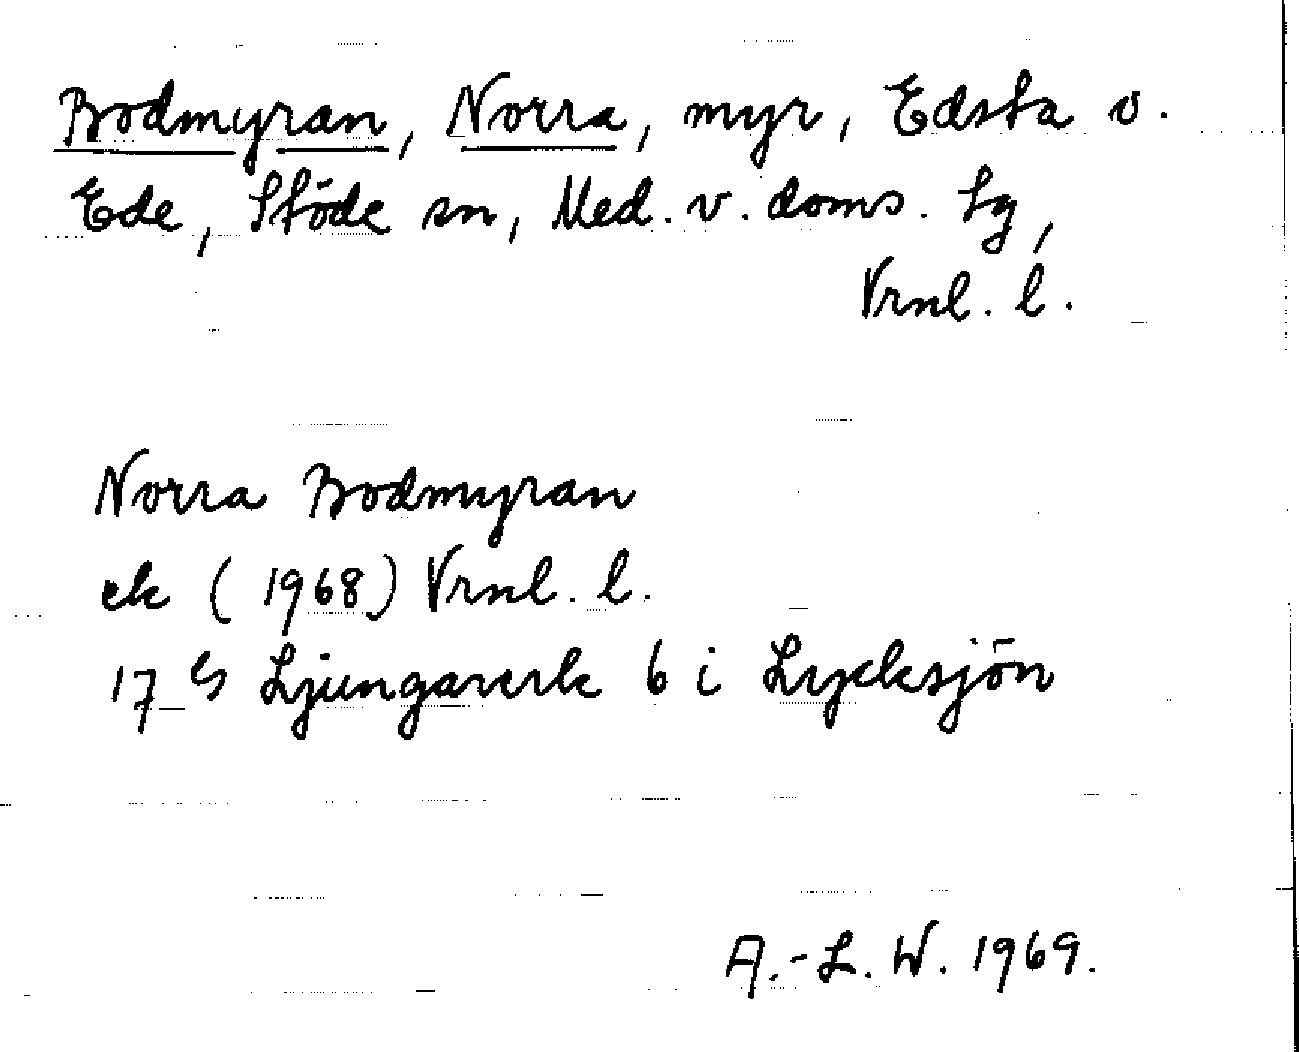 Bodmyran, Norra, myr, Edsta o.
Ede, Stöde sn, Med. v. doms. tg,
Vrnl. l.
Norra Bodmyran
ek (1968) Vrnl. l.
17 G Ljungaverk 6 i Lycksjön
A.-L. W. 1969.